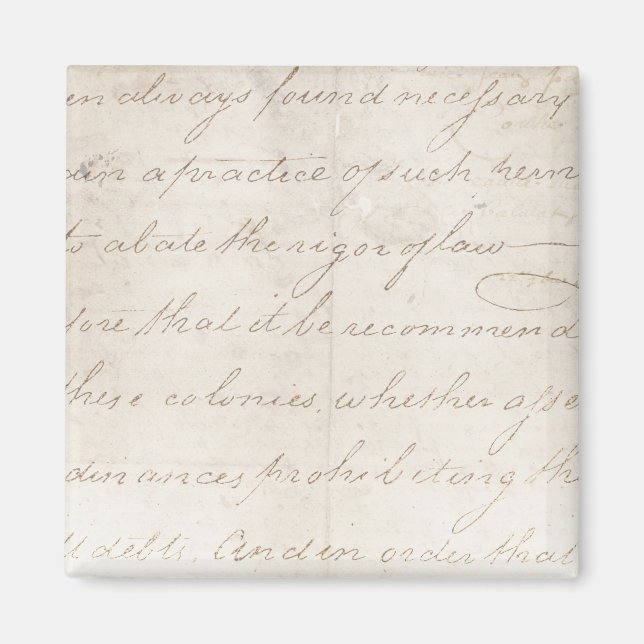 en always found necessary
ain a practice of such herm
to abate the rigor of law
fore that it be recommend
these colonies, whether asse
dinances prohibiting the
ll debts. And in order that